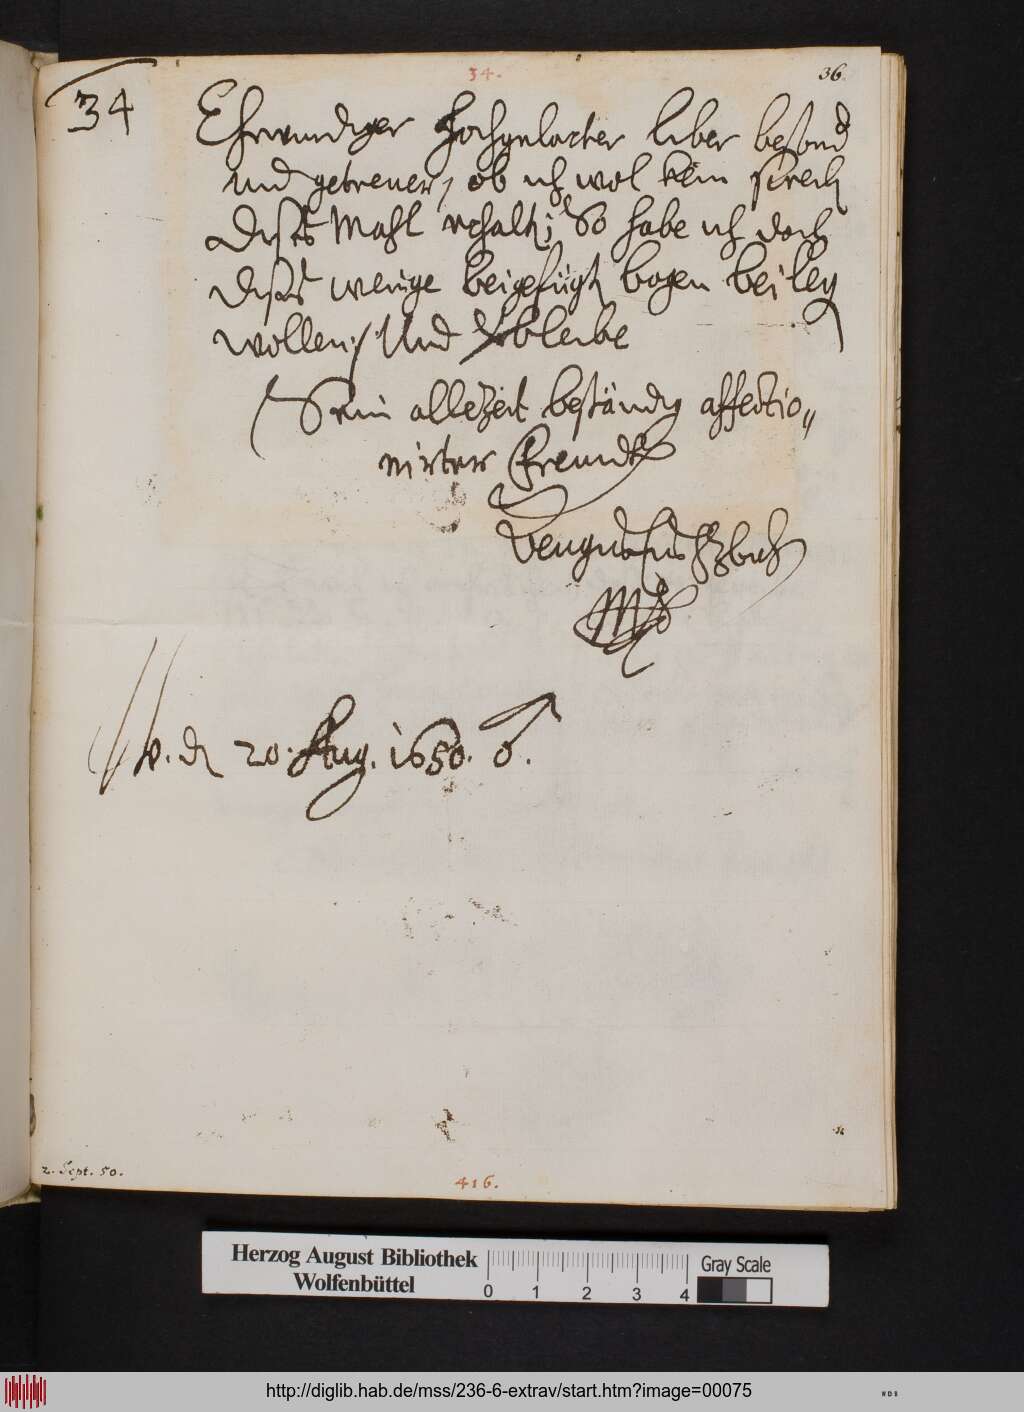 34.
36
34
Ehrwurdiger Hochgelarter liber besond
und getrewer, ob ich wol kein schreib
dises Mahl erhalt; So habe ich doch
dises wenige beigefügt bogen beileg
wollen; Und verbleibe
Sein allezeit beständig affectio„
nirter Freundt
Augustus HzBuL
Mp
W. d 20. Aug. 1650. ♂.
2. Sept. 50.
416.
Herzog August Bibliothek
Wolfenbüttel
0 1 2 3 4
Gray Scale
http://diglib.hab.de/mss/236-6-extrav/start.htm?image=00075
WDB